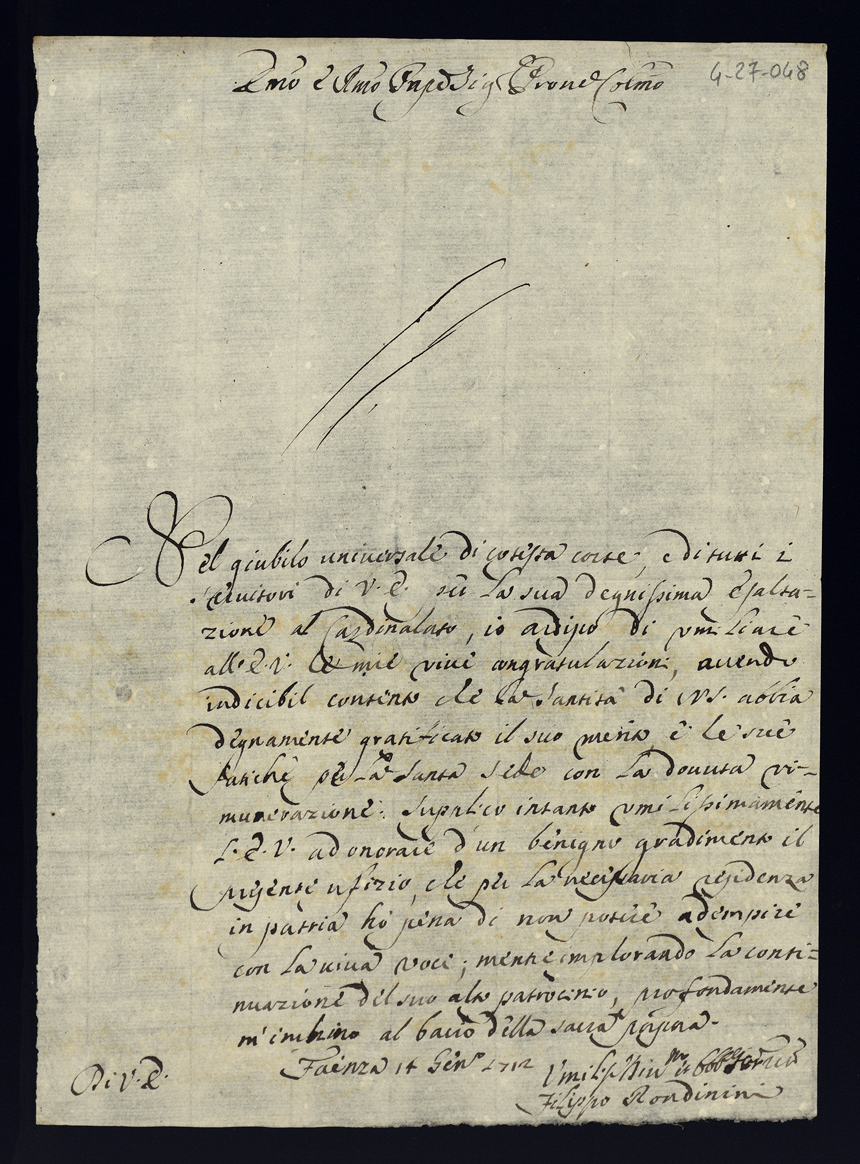 Emo e Rmo Sig.r Prone Colmo
4-27-048
Nel giubilo universale di cotesta corte, e di tutti i
servitori di V. E. per la sua degnissima esalta=
zione al Cardinalato, io ardisco di umiliare
all'E. V. le mie vive congratulazioni, avendo
indicibil contento che la Santità di N. S. abbia
degnamente gratificato il suo merito, e le sue
fatiche per la Santa Sede con la dovuta ri=
munerazione. Supplico intanto umilissimamente
l'E. V. ad onorare d'un benigno gradimento il
presente ufizio, che per la necessaria residenza
in patria ho pena di non potere adempire
con la viva voce; mentre implorando la conti=
nuazione del suo alto patrocinio, profondamente
m'inchino al bacio della sacra porpora.
Faenza 14 Gen.o 1712
Di V. E.
Umiliss. Div.mo et Obb. Servitore
Filippo Rondinini